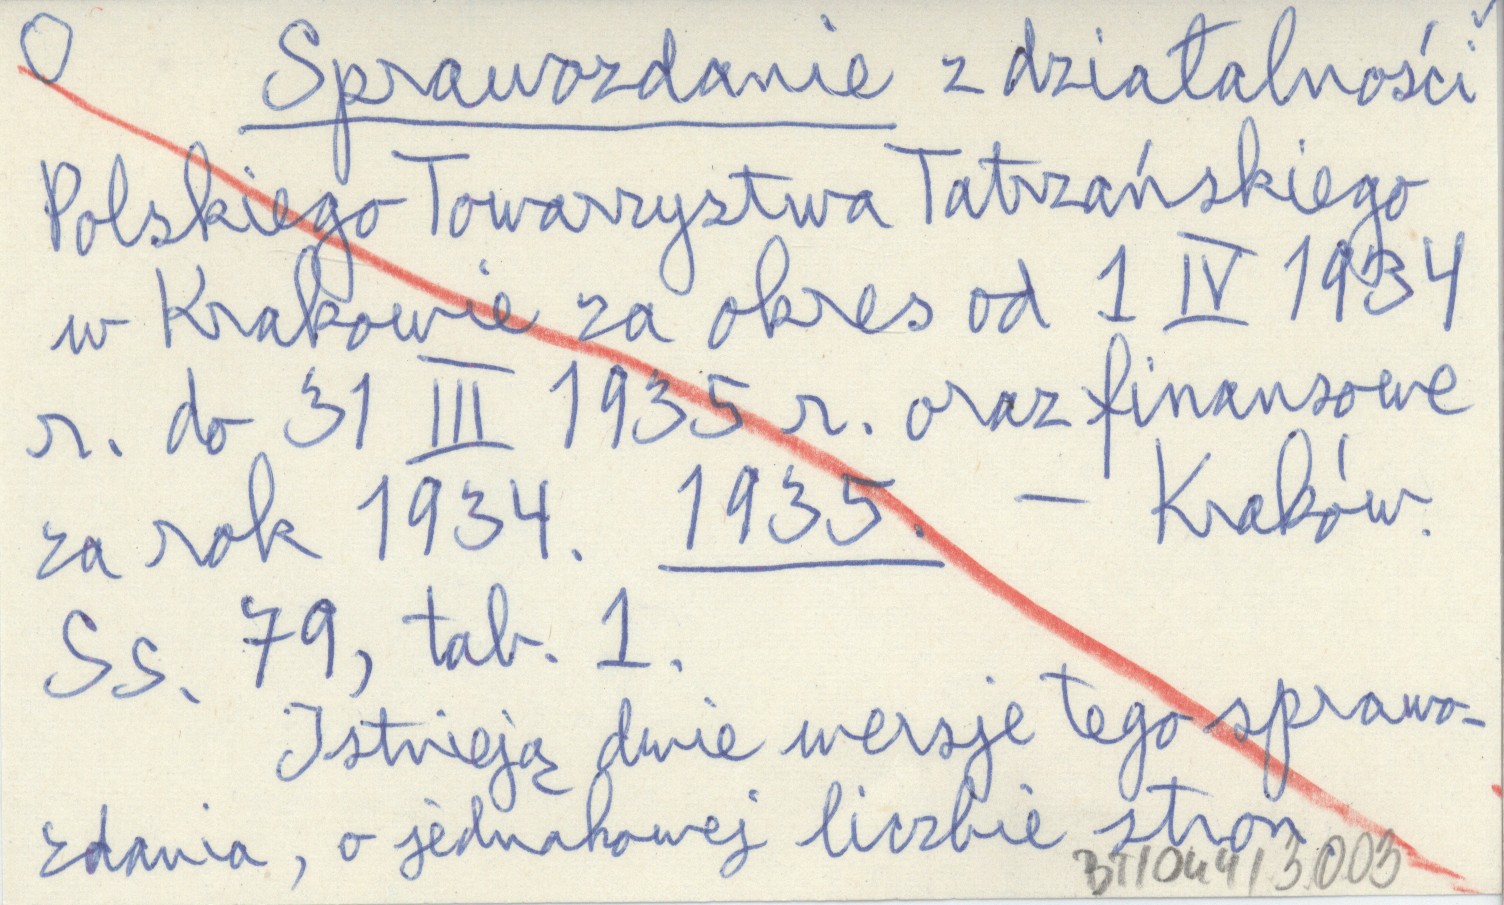 O Sprawozdanie z działalności
Polskiego Towarzystwa Tatrzańskiego
w Krakowie za okres od 1 IV 1934
r. do 31 III 1935 r. oraz finansowe
za rok 1934. 1935. – Kraków.
Ss. 79, tab. 1.
Istnieją dwie wersje tego sprawo-
zdania, o jednakowej liczbie stron
BT/044/3.003